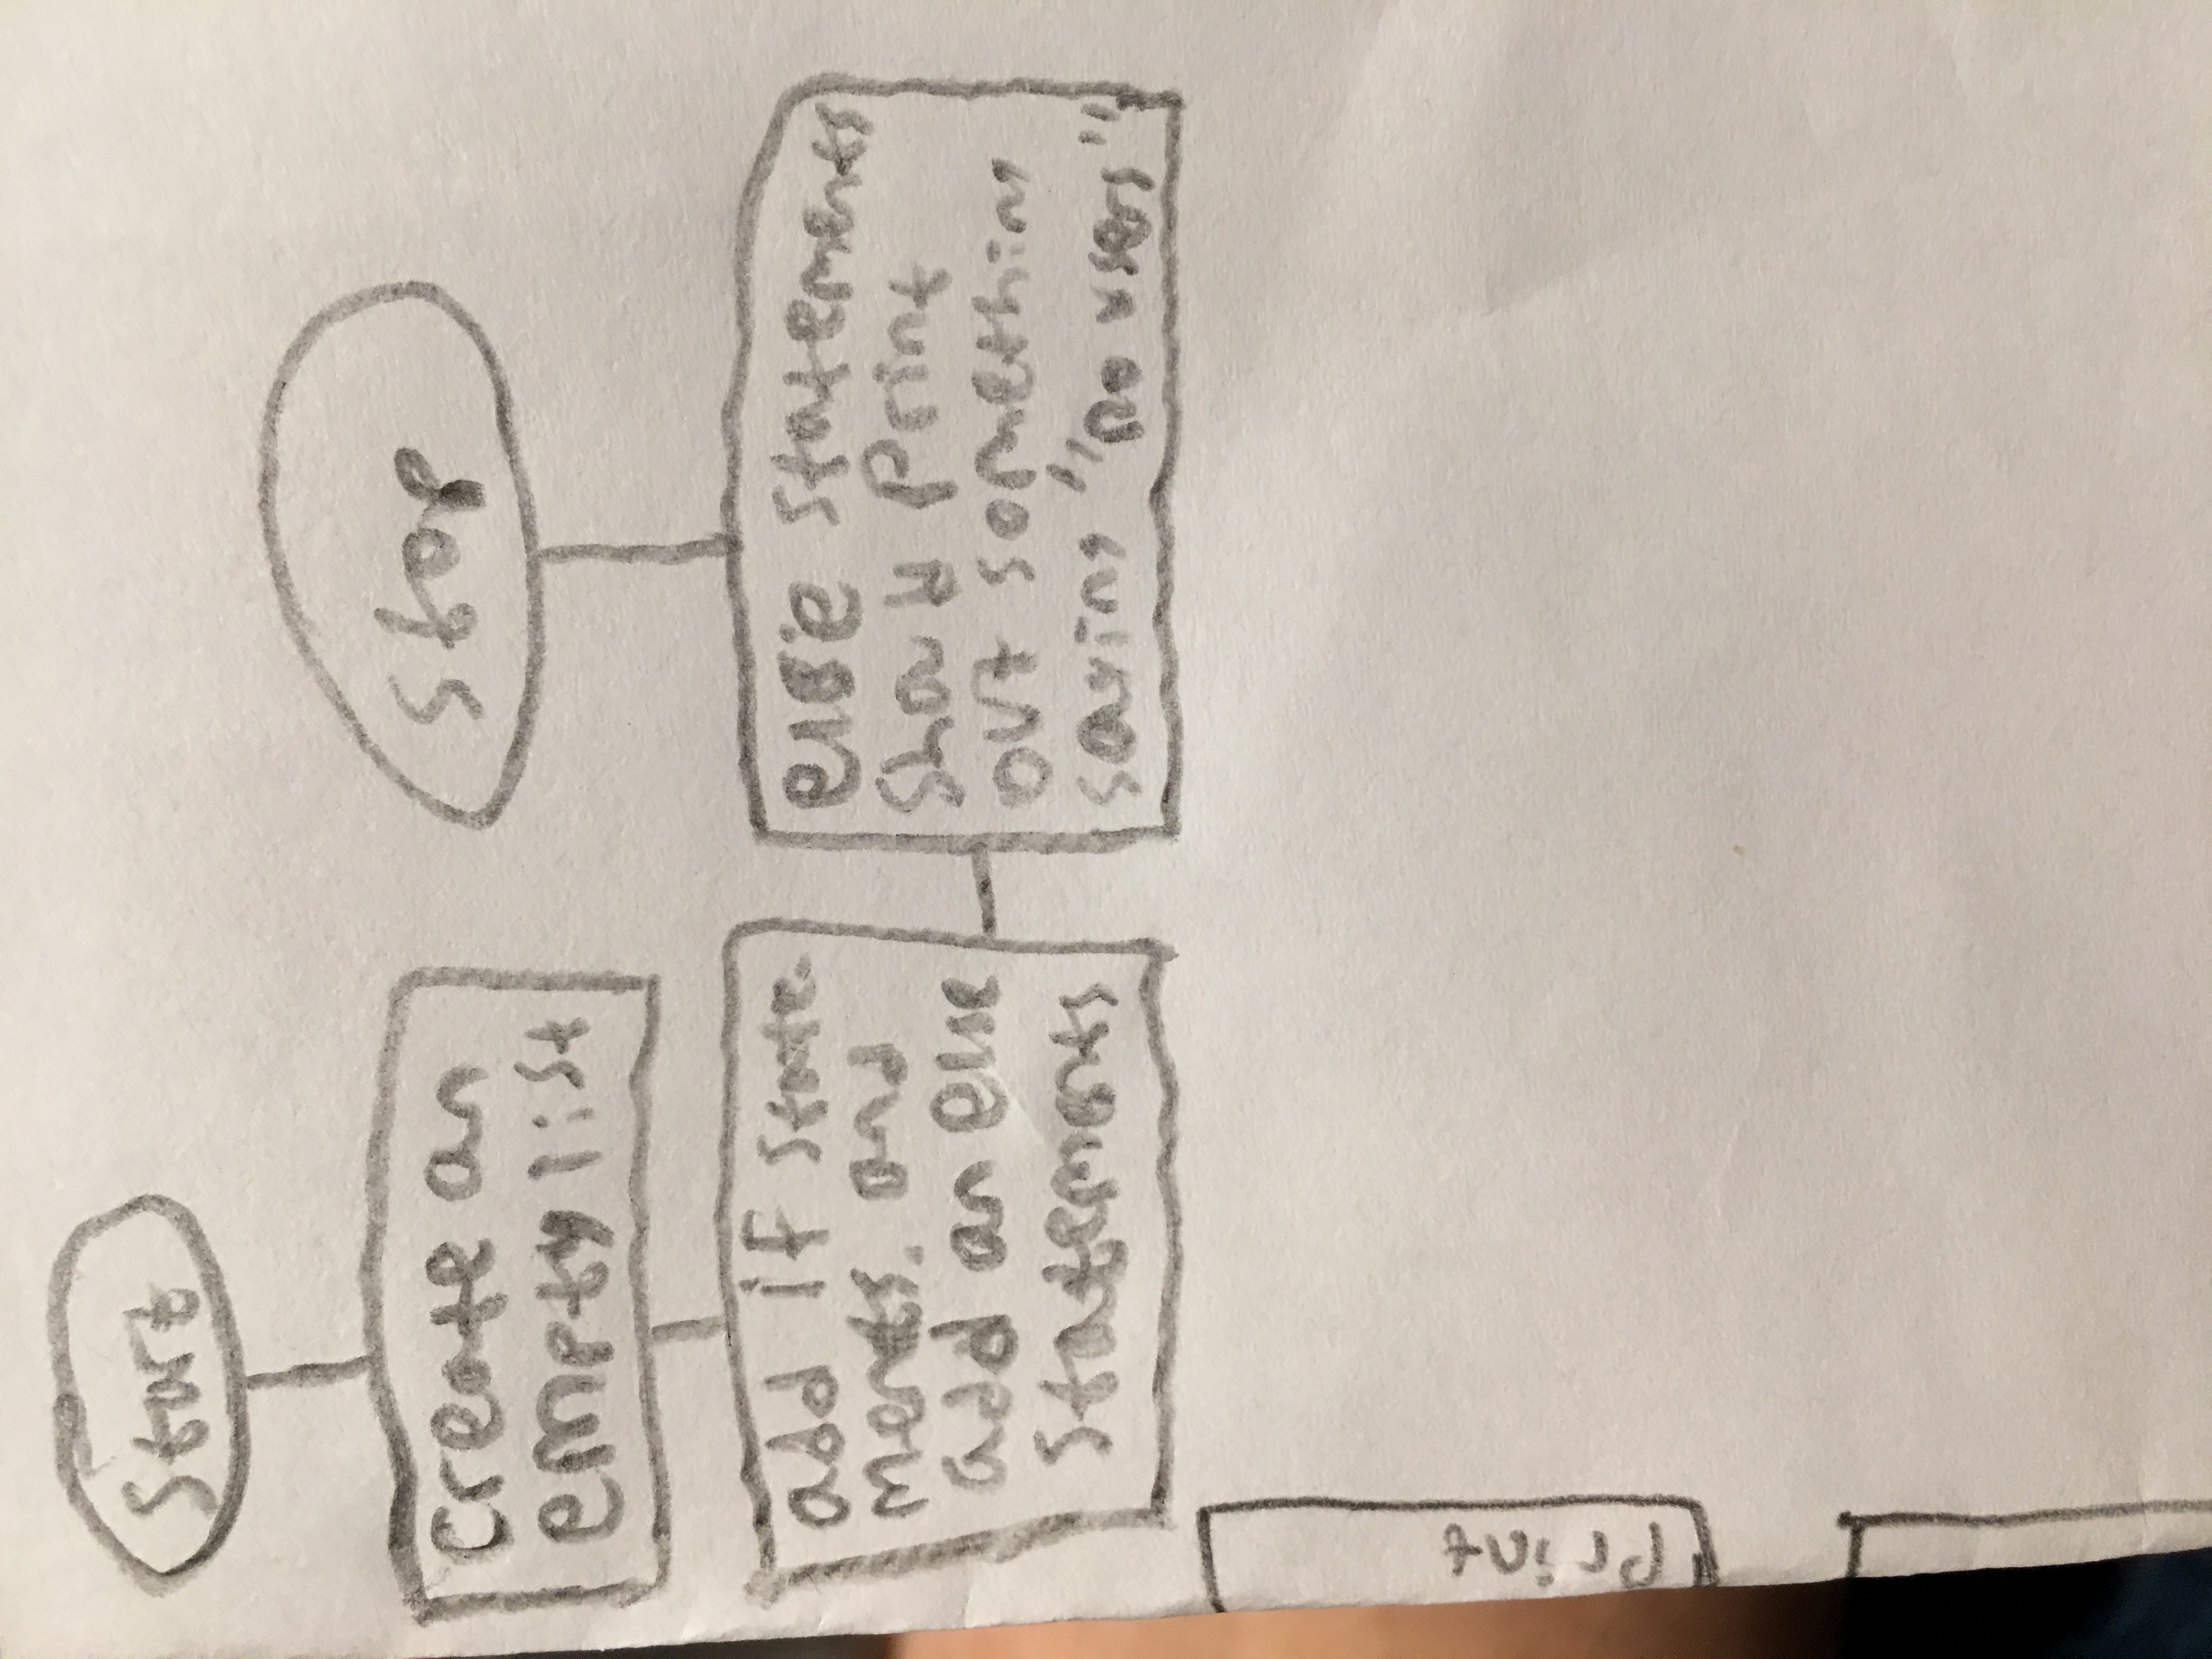 Start
create an
empty list
add if state-
ments. and
add an else
statements
Stop
else statements
should print
out something
saying "no users"
Print